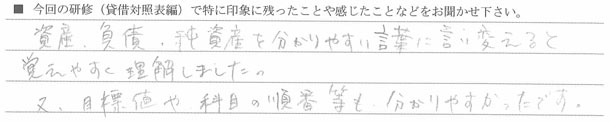 ■ 今回の研修（貸借対照表編）で特に印象に残ったことや感じたことなどをお聞かせ下さい。
資産、負債、純資産を分かりやすい言葉に言い変えると
覚えやすく理解しました。
又、目標値や科目の順番等も分かりやすかったです。